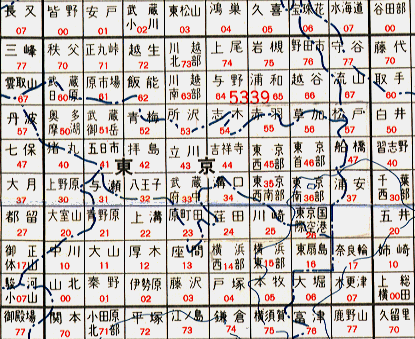 長又 皆野 安戸 武蔵小川 東松山 鴻巣 久喜 宝珠花 水海道 谷田部
07 00 01 02 03 04 05 06 07 00
三峰 秩父 正丸峠 越生 川越北部 上尾 岩槻 野田市 守谷 藤代
77 70 71 72 73 74 75 76 77 70
雲取山 武蔵日原 原市場 飯能 川越南部 与野 浦和 越谷 流山 取手
67 60 61 62 63 64 65 66 67 60
5339
丹波 奥多摩湖 武蔵御岳 青梅 所沢 志木 赤羽 草加 松戸 白井
57 50 51 52 53 54 55 56 57 50
七保 猪丸 五日市 拝島 立川 吉祥寺 東京西部 東京首部 船橋 習志野
47 40 41 42 43 44 45 46 47 40
東京
大月 上野原 与瀬 八王子 武蔵府中 溝口 東京西南部 東京南部 浦安 千葉西部
37 30 31 32 33 34 35 36 37 30
都留 大室山 青野原 上溝 原町田 荏田 川崎 東京国際空港 五井
27 20 21 22 23 24 25 26 20
御正体山 中川 大山 厚木 座間 横浜西部 横浜東部 東扇島 奈良輪 姉崎
17 10 11 12 13 14 15 16 17 10
駿河小山 山北 秦野 伊勢原 藤沢 戸塚 本牧 大堀 木更津 上総横田
07 00 01 02 03 04 05 06 07 00
御殿場 関本 小田原北部 平塚 江ノ島 鎌倉 横須賀 富津 鹿野山 久留里
77 70 71 72 73 74 75 76 77 70